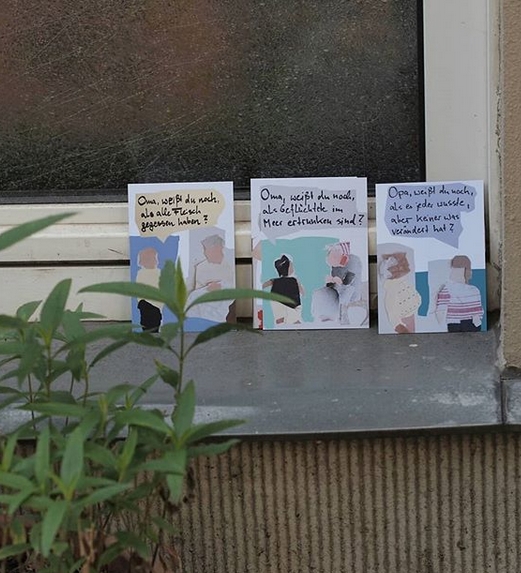 Oma, weißt du noch,
als alle Fleisch
gegessen haben?
Oma, weißt du noch,
als Geflüchtete im
Meer ertrunken sind?
Opa, weißt du noch,
als es jeder wusste,
aber keiner was
verändert hat?